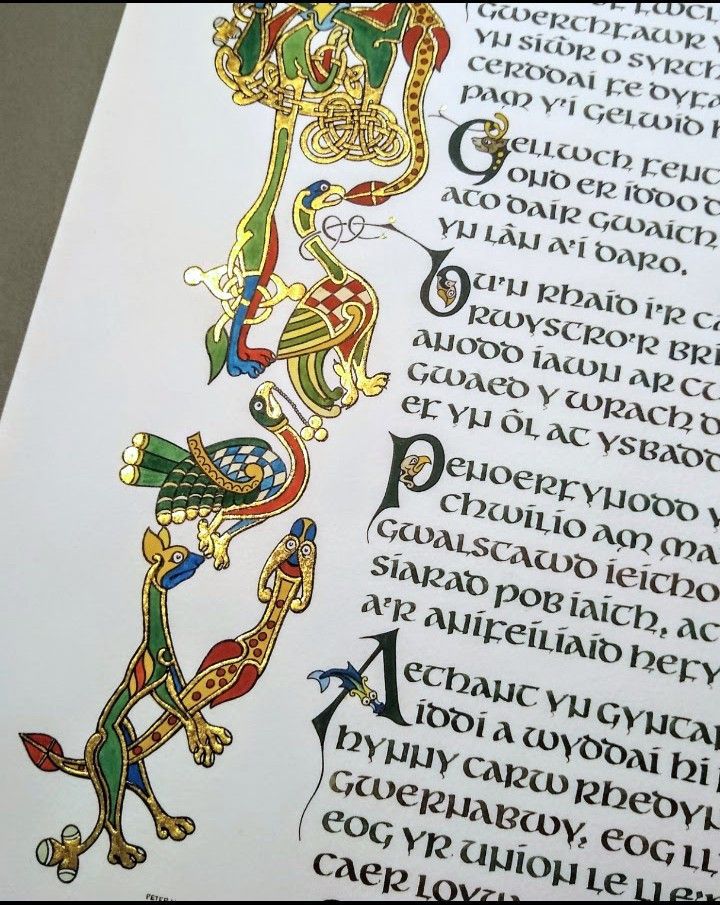 GWERTHFAWR Y
YN SIŴR O SYRTH
CERDDAI FE DYFA
PAM Y'I GELWID H
GELLWCH FENT
OND ER IDDO D
ATO DAIR GWAITH
YN LÂN A'I DARO.
BU'N RHAID I'R CA
RWYSTRO'R BRI
ANODD IAWN AR CU
GWAED Y WRACH D
EF YN ÔL AT YSBADD
PENDERFYNODD Y
CHWILIO AM MA
GWALSTAWD IEITHO
SIARAD POB IAITH, AC
A'R ANIFEILIAID HEFY
AETHANT YN GYNTAF
IDDI A WYDDAI HI
HYNNY CARW RHEDYN
GWERNABWY, EOG LL
EOG YR UNION LE LLE'
CAER LOYW
PETER